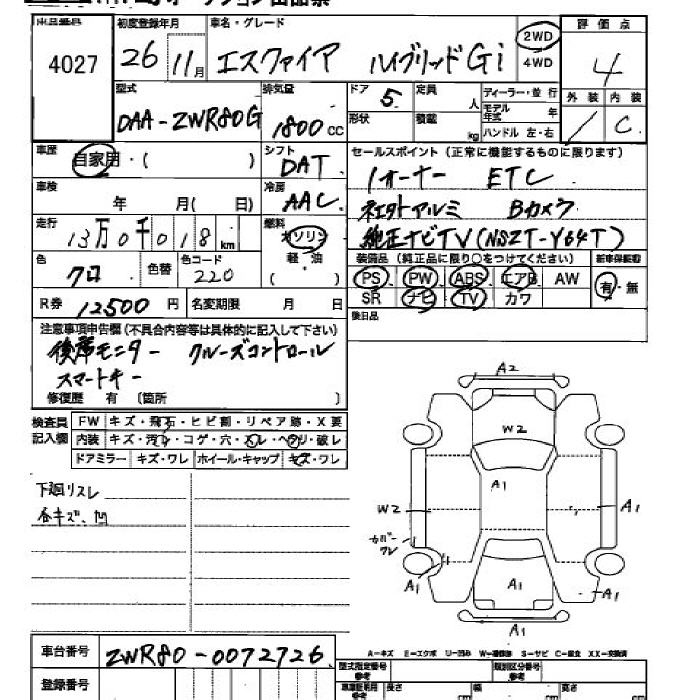 4027
初度登録年月 26 11月
車名・グレード エスクァイア ハイブリッドGi
2WD 4WD
評価点 4
外装 / 内装 C
型式 DAA-ZWR80G
排気量 1800cc
ドア 5 定員 人
形状 積載 kg
ディーラー・並行
モデル年式 年
ハンドル 左・右
車歴 自家用・( )
シフト DAT
セールスポイント (正常に機能するものに限ります)
1オーナー ETC
車検 年 月( 日)
冷房 AAC
アルミ Bカメラ
走行 13万0千018km
燃料 ガソリン 軽・油 ( )
純正ナビTV(NSZT-Y64T)
装備品 (純正品に限り○をつけてください) 新車保証書
PS PW ABS エアB AW 有・無
SR ナビ TV カワ
色 クロ 色替 色コード 220
R券 12500円 名変期限 月 日
後日品
注意事項申告欄(不具合内容等は具体的に記入して下さい)
後席モニター クルーズコントロール
スマートキー
修復歴 有 〔箇所 〕
検査員記入欄
FW キズ・飛石・ヒビ割・リペア跡・X要
内装 キズ・汚れ・コゲ・穴・スレ・ヘタリ・破レ
ドアミラー キズ・ワレ ホイール・キャップ キズ・ワレ
下廻リスレ
各キズ、凹
A2
W2
A1
W2
A1
カバーワレ
A1
A1
A1
A1
A-キズ E-エクボ U-凹み W-補修跡 S-サビ C-腐食 XX-交換済
車台番号 ZWR80-0072726
登録番号
型式指定番号 参考
類別区分番号 参考
長さ cm 幅 cm 高さ cm